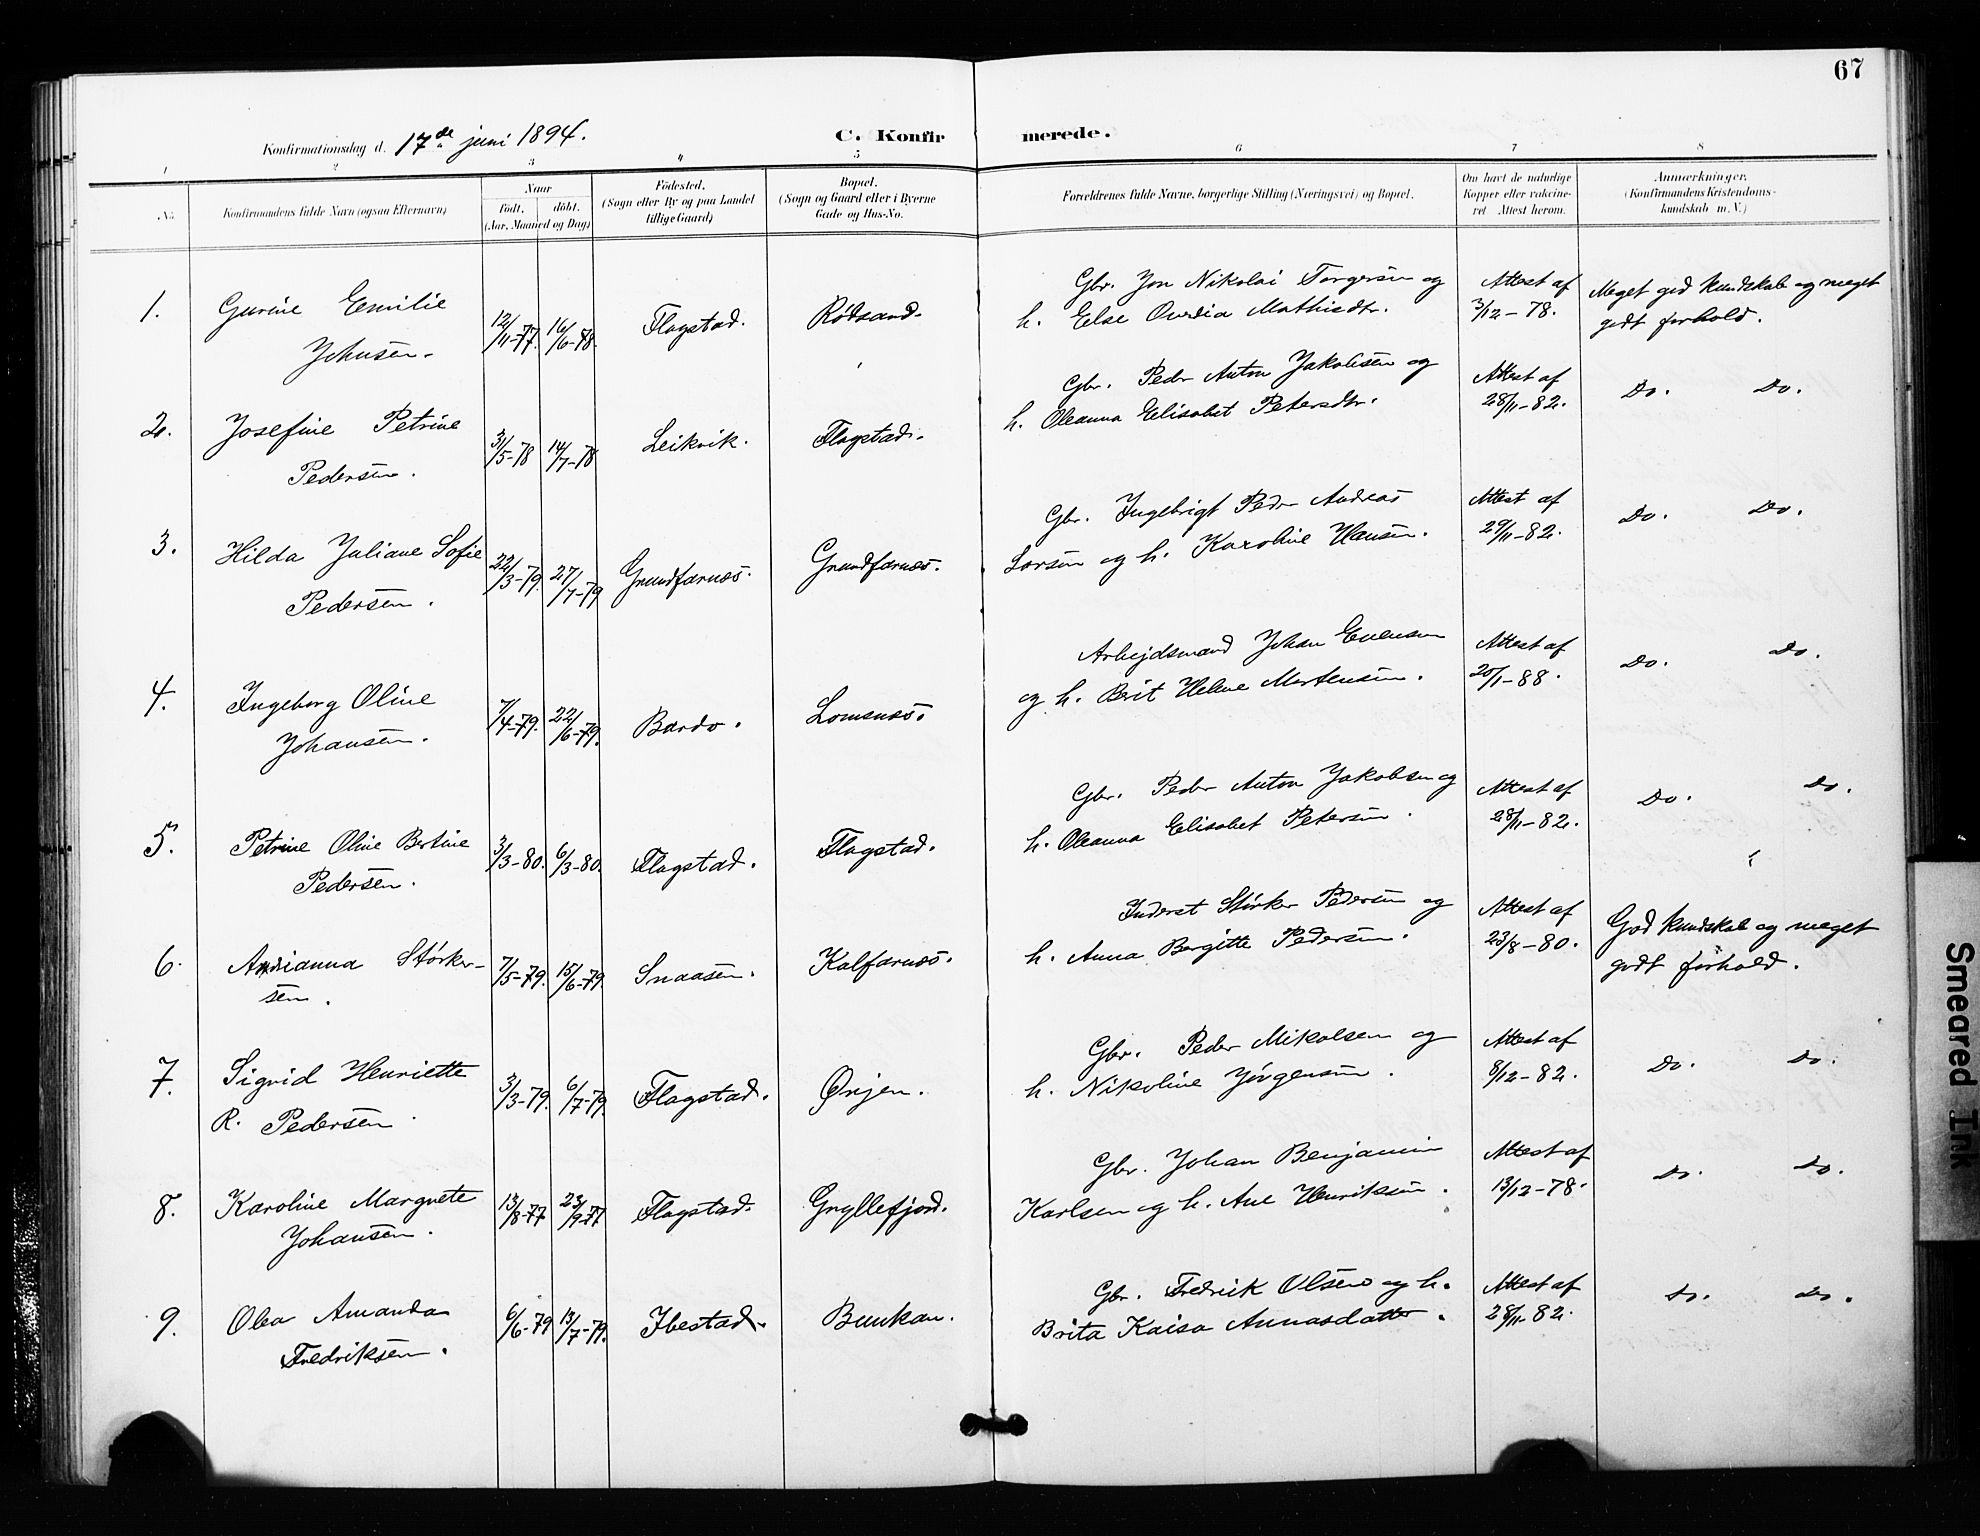 67
Konfirmationsdag d. 17de juni 1894.
C. Konfirmerede.
1 2 3 4 5 6 7 8
No.
Konfirmandens fulde Navn (ogsaa Efternavn)
Naar
født, døbt.
(Aar, Maaned og Dag)
Fødested.
(Sogn eller By og paa Landet
tillige Gaard)
Bopæl.
(Sogn og Gaard eller i Byerne
Gade og Hus-No.
Forældrenes fulde Navne, borgerlige Stilling (Næringsvei) og Bopæl.
Om havt de naturlige
Kopper eller vakcine-
ret Attest herom.
Anmærkninger.
(Konfirmandens Kristendoms-
kundskab m. V.)
1. Gurine Emilie
Johnsen.
12/11-77. 16/6-78. Flagstad. Rødsand.
Gbr. Jon Nikolai Torgersen og
h. Else Ovedia Mathisdtr.
Attest af
3/12-78.
Meget god kundskab og meget
godt forhold.
2. Josefine Petrine
Pedersen.
31/5-78 14/7-78 Leikvik. Flagstad.
Gbr. Peder Anton Jakobsen og
h. Oleanna Elisabet Petersdtr.
Attest af
28/11-82.
Do. Do.
3. Hilda Juliane Sofie
Pedersen.
22/3-79. 27/7-79 Grundfarnæs. Grundfarnæs.
Gbr. Ingebrigt Peder Andreas
Larsen og h. Karoline Hansen.
Attest af
29/11-82.
Do. Do.
4. Ingeborg Oline
Johansen.
7/4-79. 22/6-79. Bardo. Lomsnæs.
Arbejdsmand Johan Evensen
og h. Berit Helene Mortensen.
Attest af
20/1-88.
Do. Do.
5. Petrine Oline Bertine
Pedersen.
3/3-80. 6/3-80. Flagstad. Flagstad.
Gbr. Peder Anton Jakobsen og
h. Oleanna Elisabet Petersen.
Attest af
28/11-82.
Do. Do.
6. Adrianna Størker-
sen.
7/5-79. 15/6-79 Snaasen. Kalfarnæs.
Inderst Størker Pedersen og
h. Anna Bergitte Pedersen.
Attest af
23/8-80.
God kundskab og meget
godt forhold.
7. Sigrid Henriette
R. Pedersen
3/3-79. 6/7-79. Flagstad. Ørjen.
Gbr. Peder Mikalsen og
h. Nikoline Jörgensen.
Attest af
8/12-82.
Do. Do.
8. Karoline Margrete
Johansen.
13/8-77 23/9-77 Flagstad. Gryllefjord.
Gbr. Johan Benjamin
Karlsen og h. Ane Henriksen.
Attest af
13/12-78.
Do. Do.
9. Olea Amanda
Fredriksen.
6/6-79 13/7-79. Ibestad. Bunkan.
Gbr. Fredrik Olsen og h.
Brita Kaisa Annasdatter.
Attest af
28/11-82.
Do. Do.
Smeared Ink